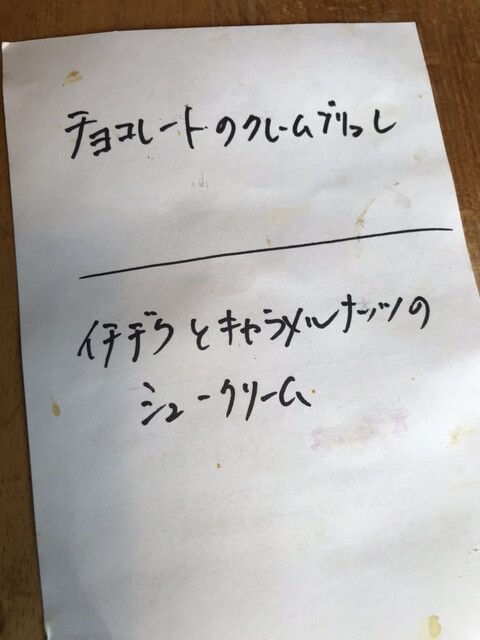 チョコレートのクレームブリュレ
イチヂクとキャラメルナッツの
シュークリーム